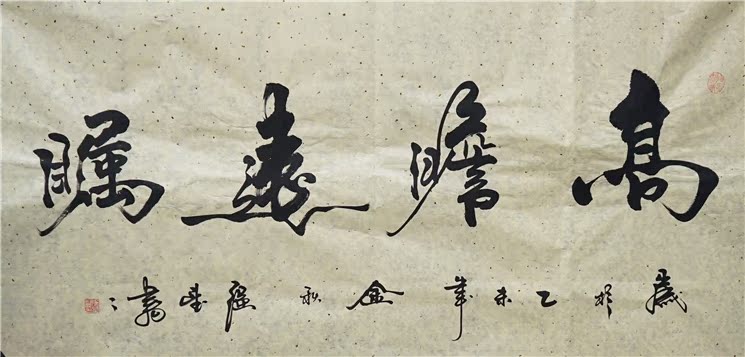 高瞻遠矚
歲於乙未年金秋